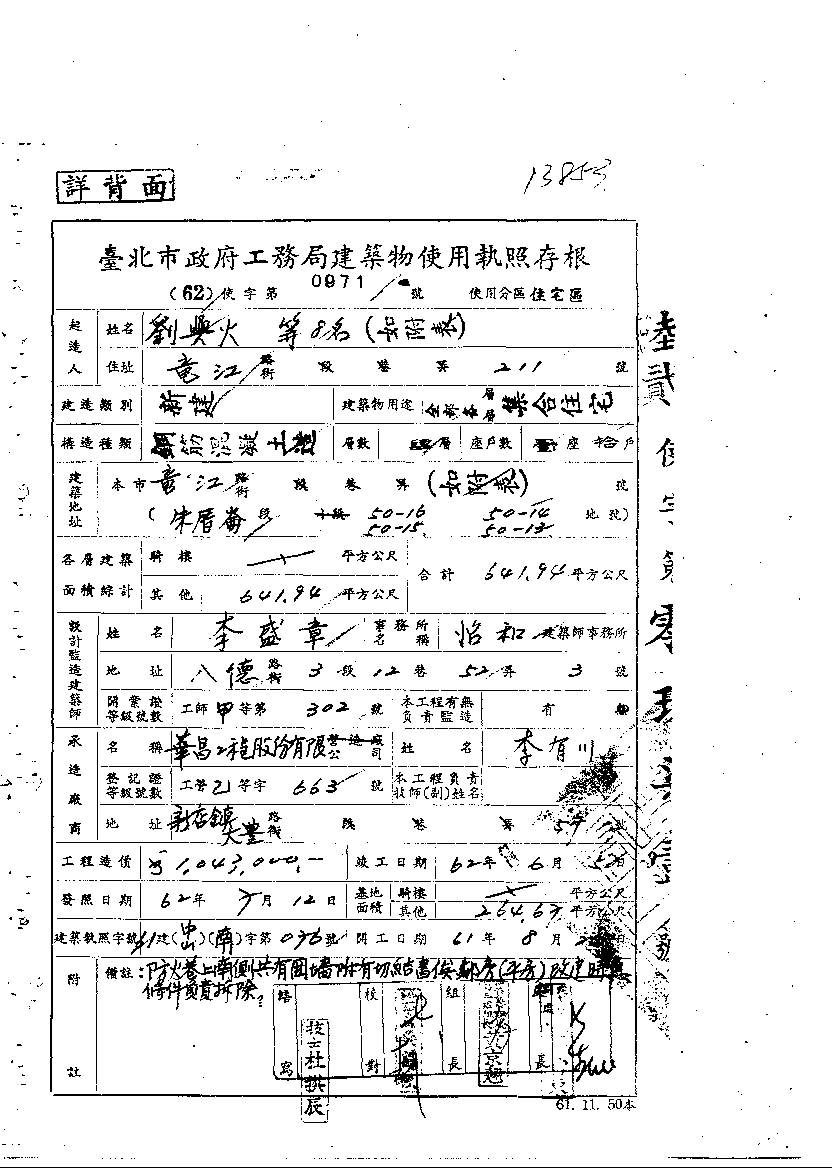 詳背面
13853
臺北市政府工務局建築物使用執照存根
(62)使字第0971號 使用分區住宅區
起造人 姓名 劉興火 等8名(如附表)
住址 竜江路街 段 巷 弄 211 號
建造類別 新建 建築物用途 全部各層層集合住宅
構造種類 鋼筋混凝土造 層數 層 座戶數 座拾戶
建築地址 本市竜江路街 段 巷 弄(如附表) 號
(朱厝崙段 50-16 50-14 地號)
50-15 50-12
各層建築面積綜計 騎樓 平方公尺 合計 641.94平方公尺
其他 641.94平方公尺
設計監造建築師 姓名 李盛章 事務所名稱 怡和建築師事務所
地址 八德路街 3段12巷52弄3號
開業證等級號數 工師甲等第302號 本工程有無負責監造 有
承造廠商 名稱 華昌工程股份有限公司 姓名 李有川
登記證等級號數 工營乙等字663號 本工程負責技師(副)姓名
地址 新店鎮大豐路街 段 巷 弄 57
工程造價 1,043,000.- 竣工日期 62年6月 日
發照日期 62年7月12日 基地面積 騎樓 平方公尺
其他 264.67平方公尺
建築執照字號61建(中山)(南)字第036號 開工日期 61年8月 日
附註 備註:防火巷上南側共有圍牆附有切結書俟鄰房(平房)改建時無
條件負責拆除。
繕寫 校對 組長 長
技士杜撰辰
61.11.50本